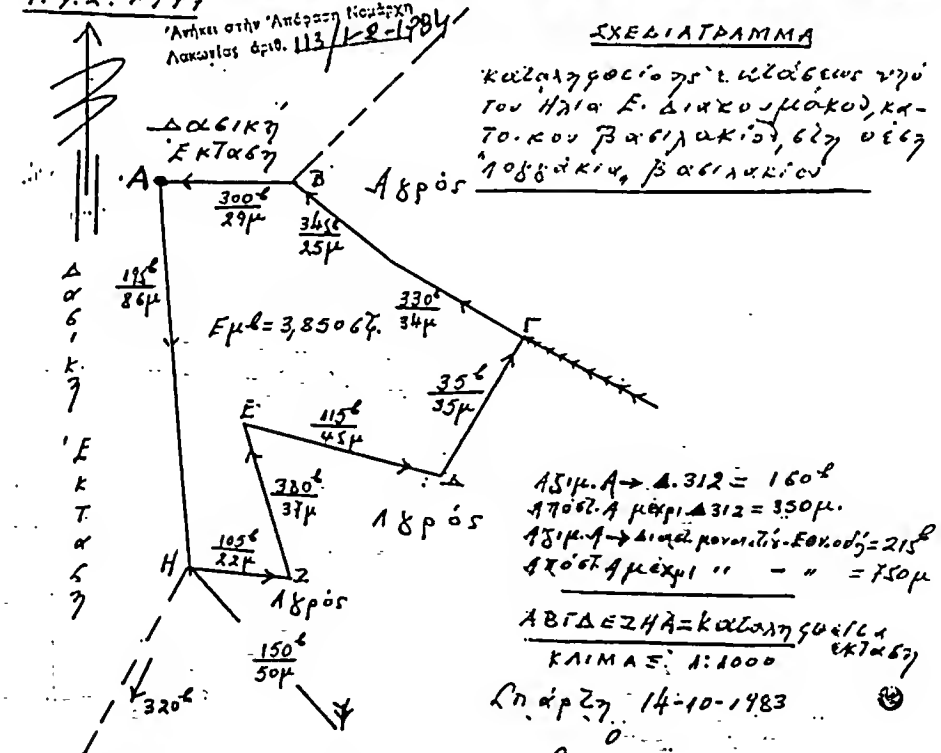 Ἀνήκει στήν Ἀπόφαση Νομάρχη
Λακωνίας ἀριθ. 113/1-2-1984
ΣΧΕΔΙΑΓΡΑΜΜΑ
καταληφθείσης ἐκτάσεως ὑπό
του Ηλία Ε. Διακουμάκου, κα-
τοίκου Βασιλακίου, στη θέση
Λογγάκια, Βασιλακίου
Δασική
Ἔκταση
Α
Β
Αγρός
300β
29μ
345β
25μ
195β
86μ
330β
34μ
Γ
Εμβ=3,850στ.
35β
35μ
Ε
115β
45μ
Δ
Αγρός
380β
37μ
105β
22μ
Η
Ζ
Αγρός
150β
50μ
320β
Δασική Ἔκταση
Αζιμ. Α→Δ.312 = 160β
Απόστ. Α μέχρι Δ312 = 350μ.
=215β
Απόστ. Α μέχρι " - " = 750μ
ΑΒΓΔΕΖΗΑ = Καταληφθείσα
ἐκταση
ΚΛΙΜΑΞ: 1:1000
Σπάρτη 14-10-1983
Ο